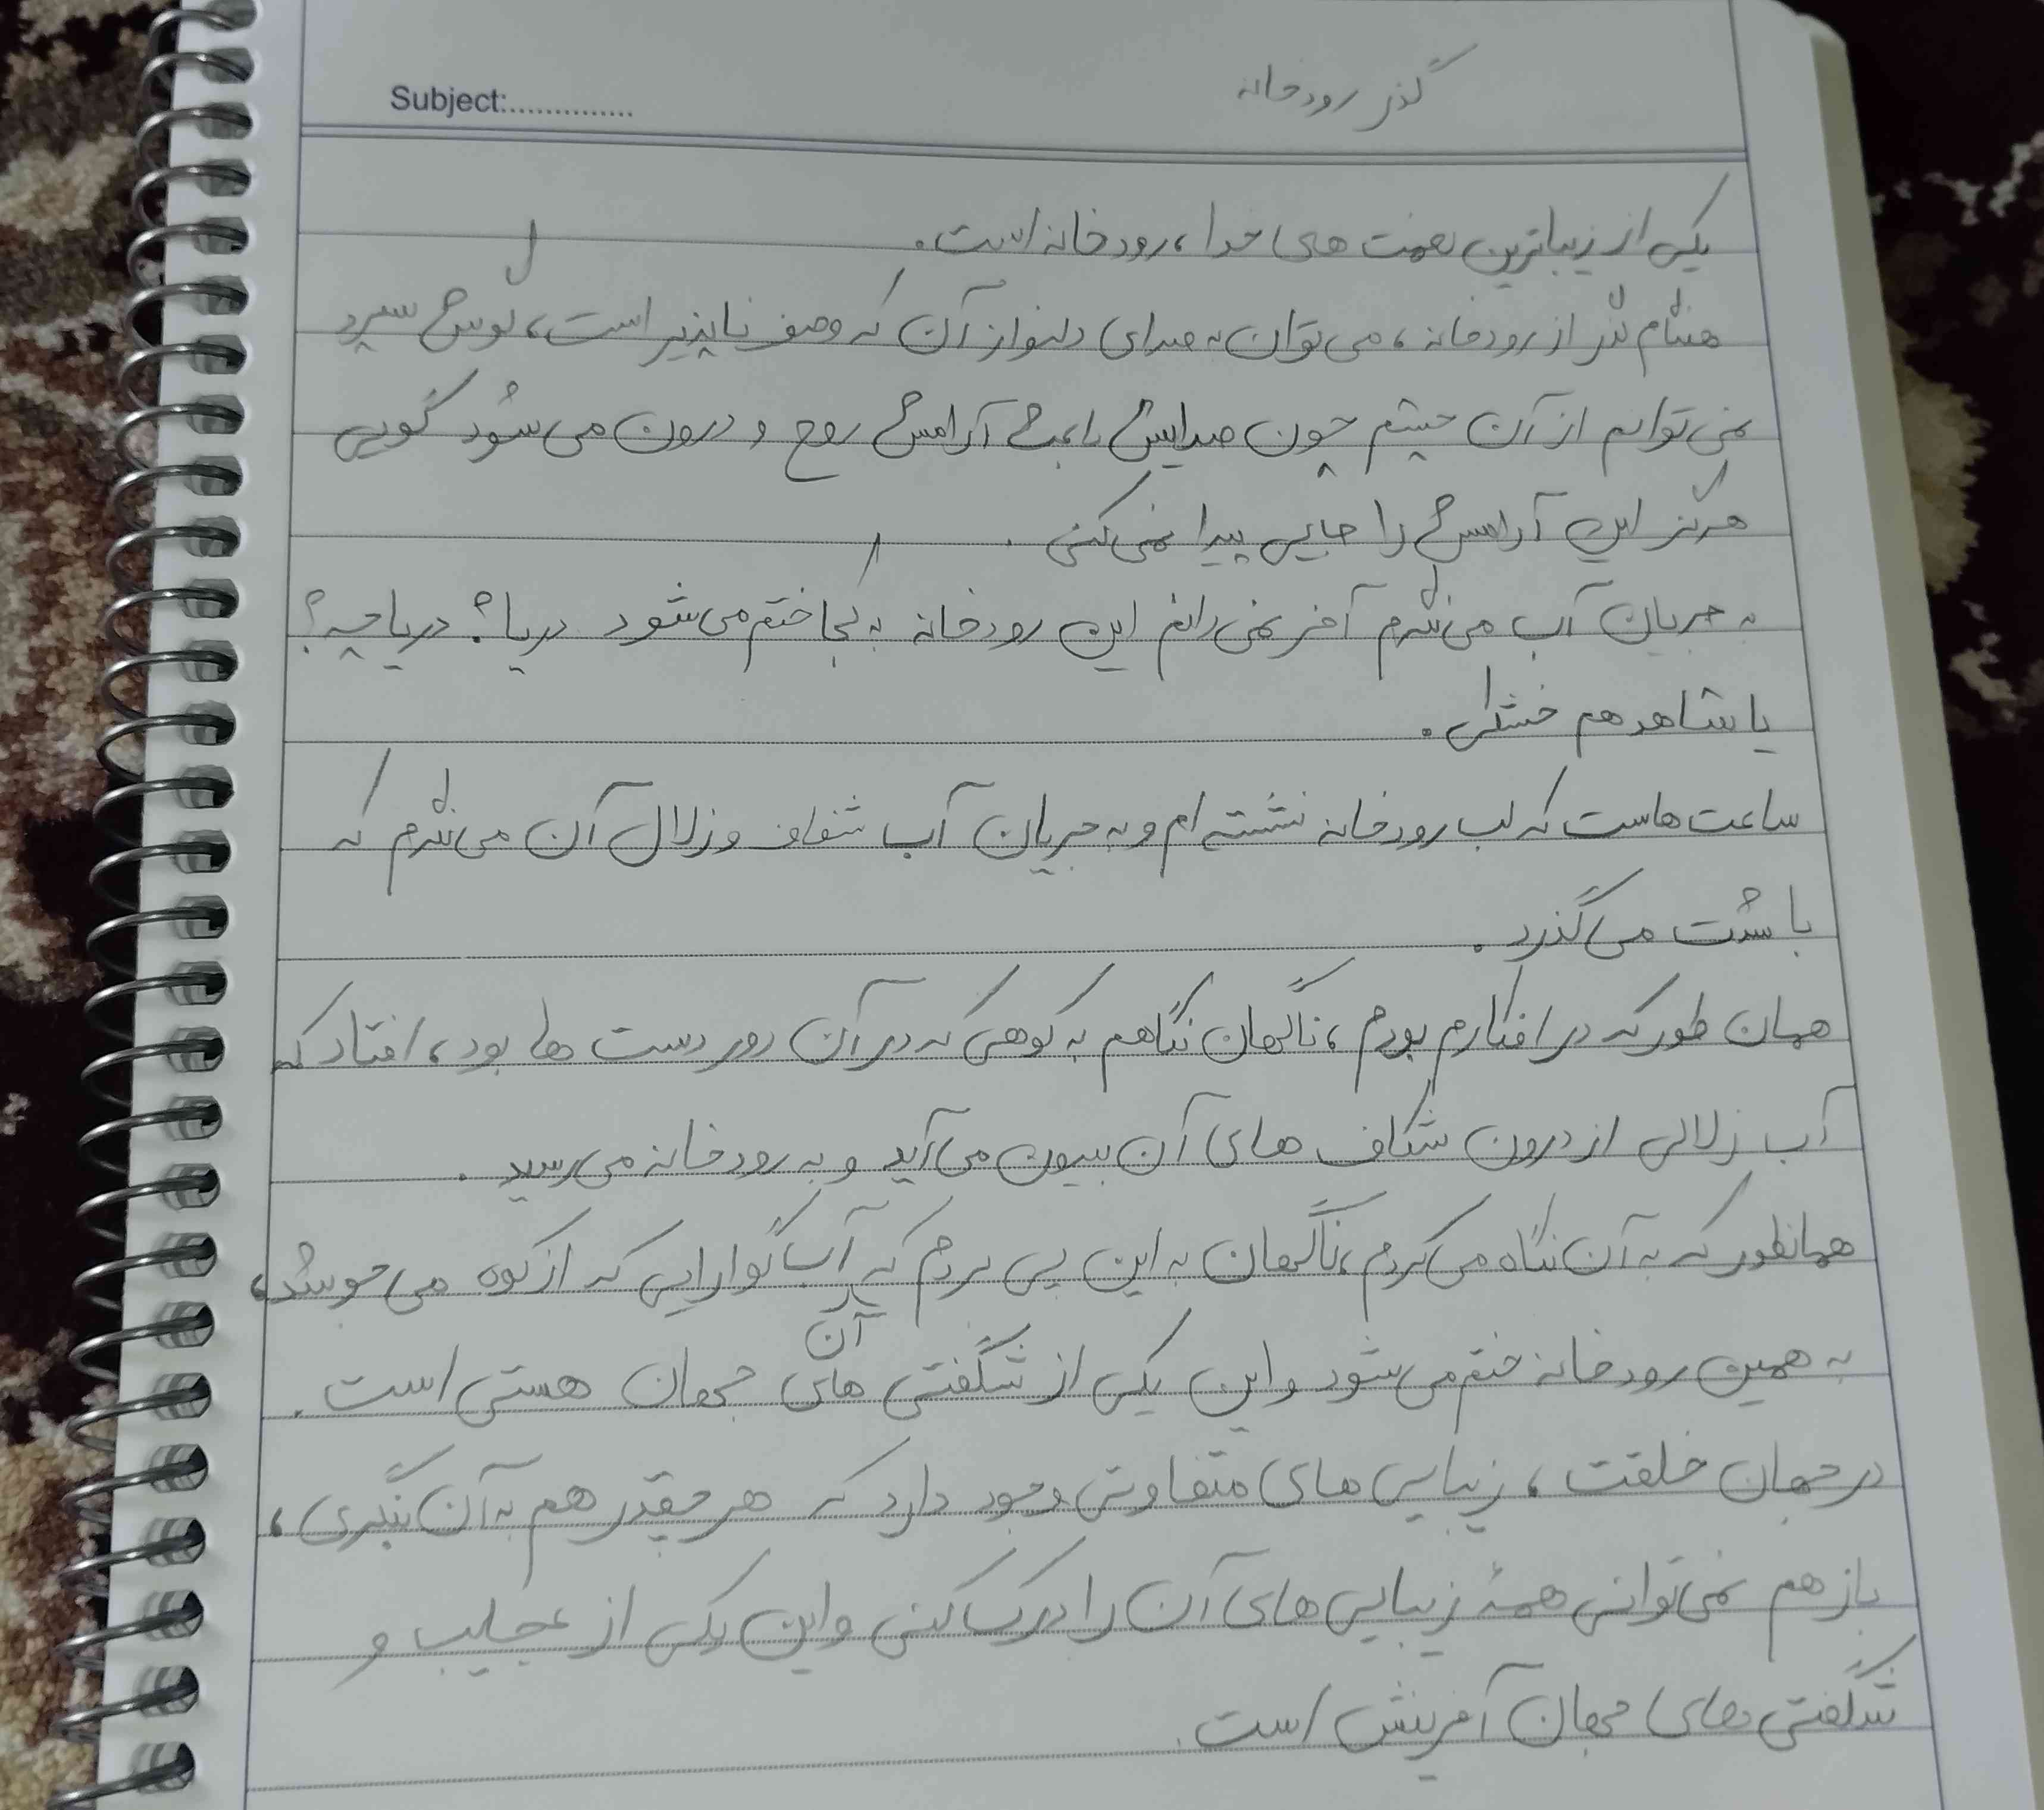 گذر رودخانه
Subject:..............
یکی از زیباترین نعمت های خدا، رودخانه است.
هنگام گذر از رودخانه، می توان به صدای دلنواز آن که وصف ناپذیر است، گوش سپرد
نمی توانم از آن چشم چون صدایش باعث آرامش روح و درون می شود گویی
هرگز این آرامش را جایی پیدا نمی کنی.
به جریان آب می نگرم آخر نمی دانم این رودخانه به کجا ختم می شود دریا؟ دریاچه؟
یا شاهد هم خشکی.
ساعت هاست که لب رودخانه نشسته ام و به جریان آب شفاف و زلال آن می نگرم که
با شدت می گذرد.
همان طور که در افکارم بودم، ناگهان نگاهم به کوهی که در آن دور دست ها بود، افتاد که
آب زلالی از درون شکاف های آن بیرون می آید و به رودخانه می رسید.
همانطور که به آن نگاه می کردم، ناگهان به این پی بردم که آب گوارایی که از کوه می جوشد،
به همین رودخانه ختم می شود و این یکی از شگفتی های آن جهان هستی است.
در جهان خلقت، زیبایی های متفاوتی وجود دارد که هر چقدر هم به آن بنگری،
باز هم نمی توانی همهٔ زیبایی های آن را درک کنی و این یکی از عجایب و
شگفتی های جهان آفرینش است.